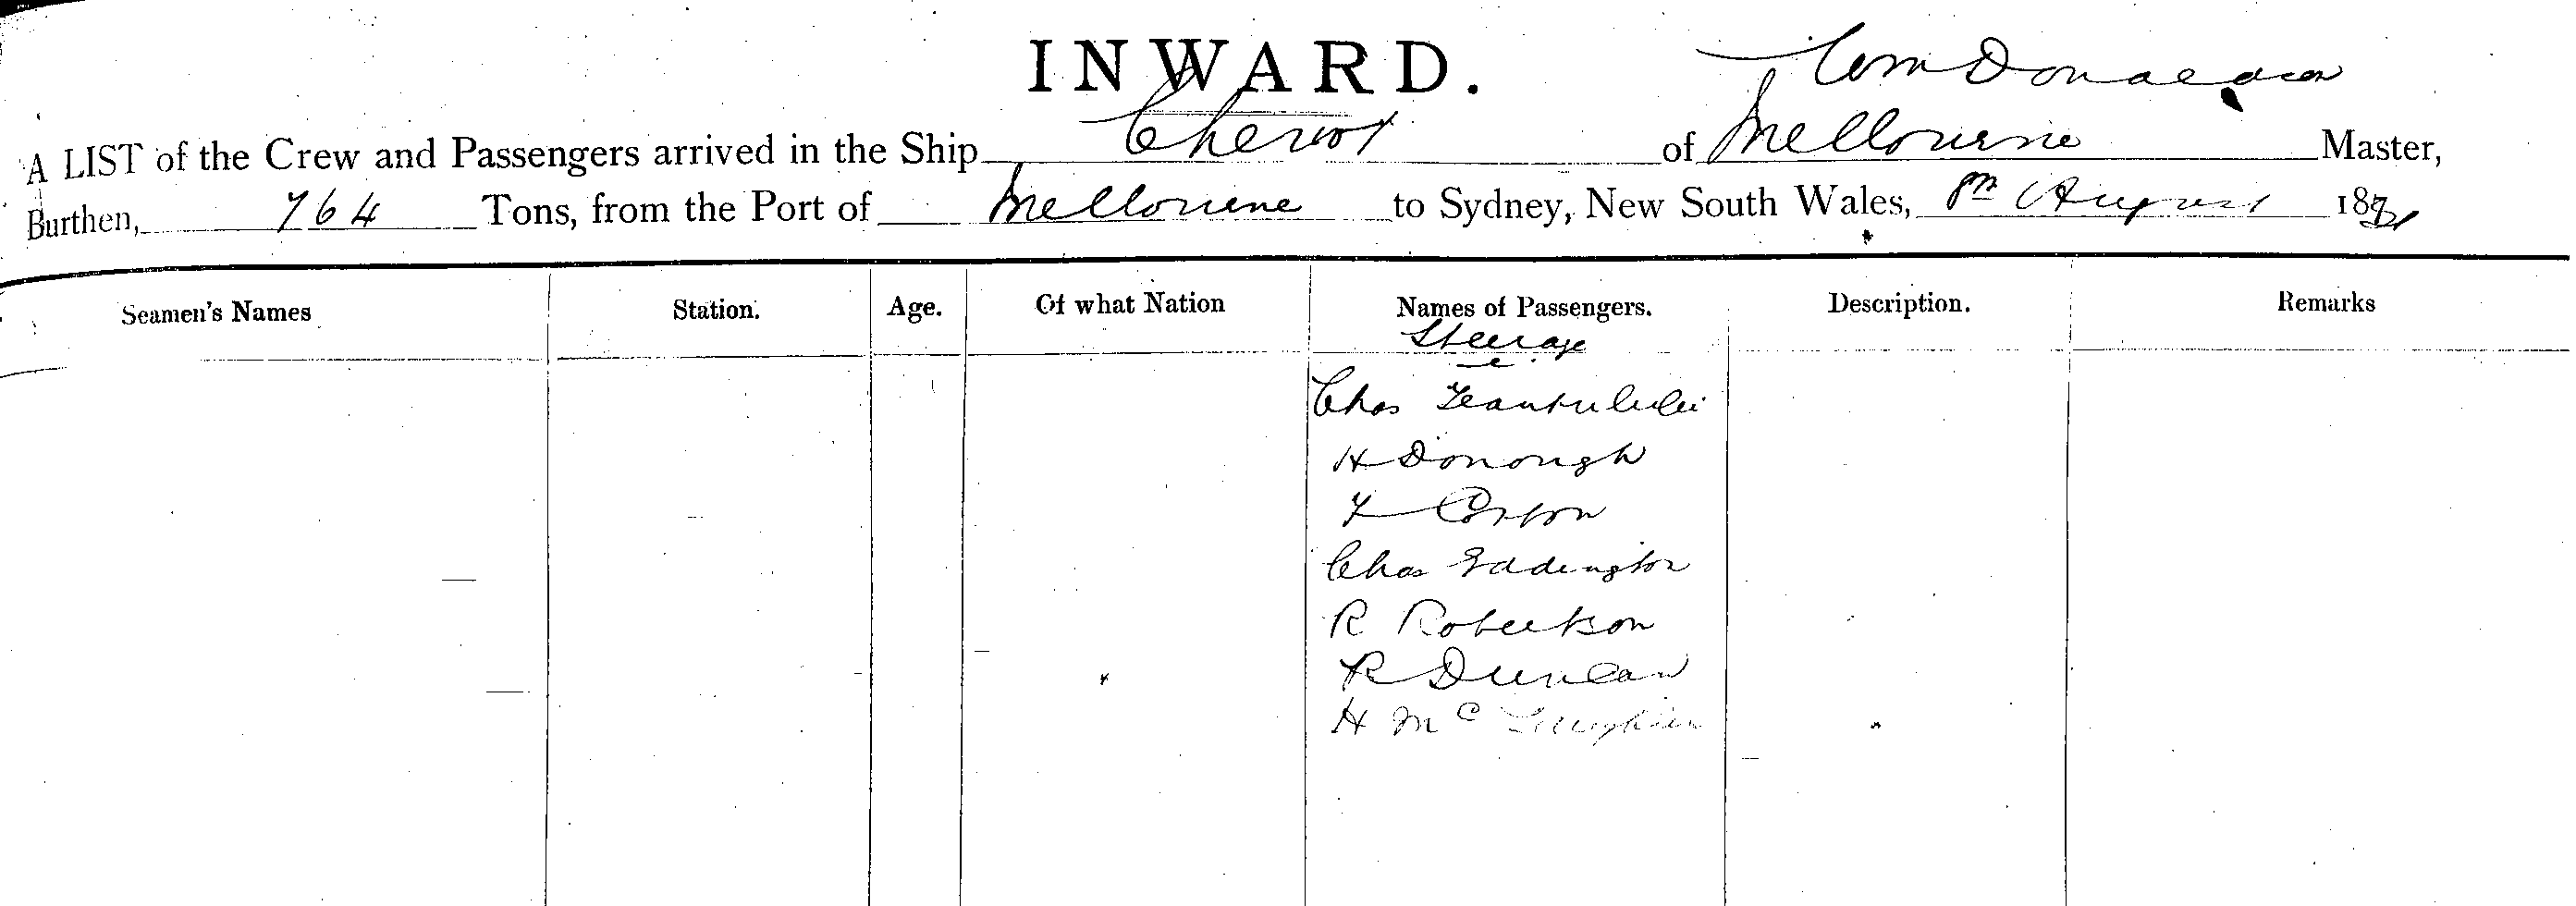 INWARD.
Wm Donaldson
A LIST of the Crew and Passengers arrived in the Ship Cheviot of Melbourne Master,
Burthen, 764 Tons, from the Port of Melbourne to Sydney, New South Wales, 8th August 18
Seamen's Names Station. Age. Of what Nation Names of Passengers. Description. Remarks
Steerage
Chas
H Donough
Chas Eddington
R Robertson
R Duncan
H Mc